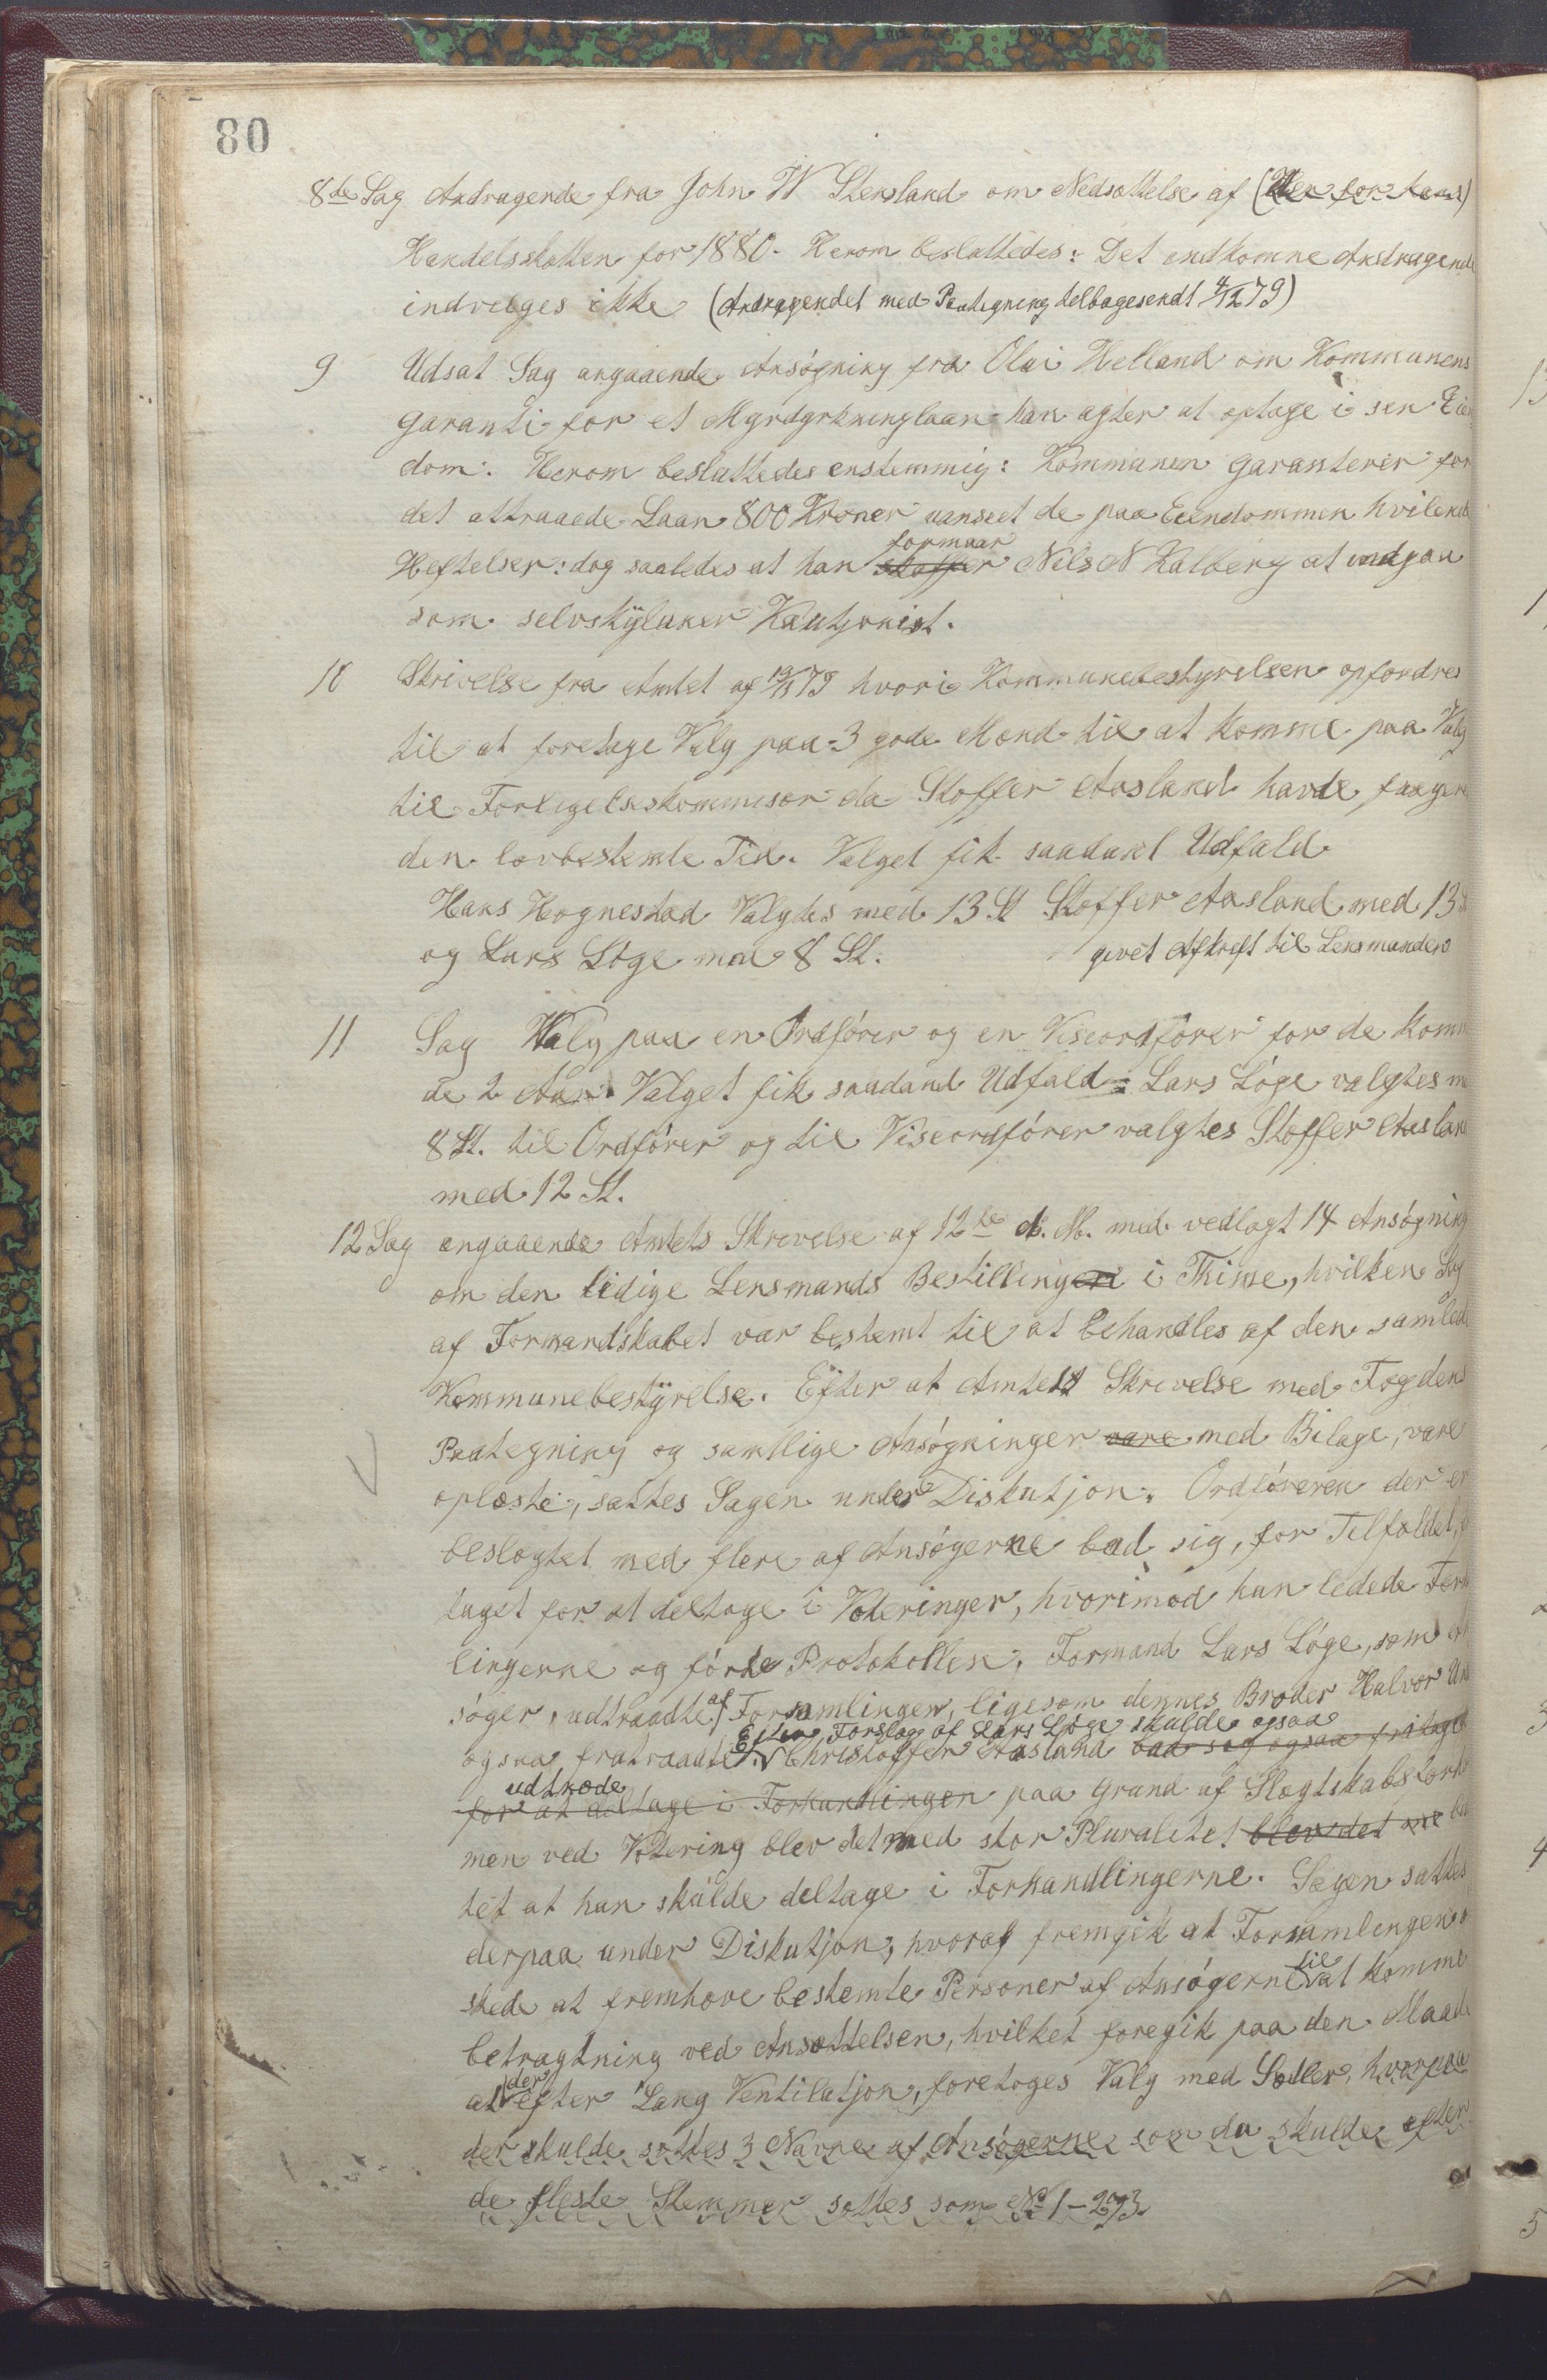 80
8de Sag Andragende fra John W Stensland om Nedsættelse af
Handelsskatten for 1880. Herom besluttedes: Det indkomne Andragende
indvilges ikke (Andragendet med Paategning tilbagesendt 4/12 79)
9 Udsat Sag angaaende Ansøgning fra Olai Helland om Kommunens
Garanti for et Myrdyrkninglaan han agter at optage i sin Eien
dom. Herom besluttedes enstemmig: Kommunen Garanterer for
det attraaede Laan 800 Kroner uanseet de paa Eiendommen hvilende
formaar
Heftelser: dog saaledes at han skaffer Nels N Kalberg at indgaa
som selvskyldner Kautjonist.
10 Skrivelse fra Amtet af 79 hvori Kommunebestyrelsen opfordres
til at foretage Valg paa 3 gode Mænd til at komme paa Valg
til Forligelseskommisær da Stoffer Aasland havde fungeret
den lovbestemte Tid. Valget fik saadant Udfald
Hans Hognestad Valgtes med 13 St Stoffer Aasland med 13 S
og Lars Løge med 8 St. givet Afskrift til Lensmanden
11 Sag Valg paa en Ordfører og en Viseordfører for de komm
de 2 Aar. Valget fik saadand Udfald: Lars Løge valgtes m
8 St. til Ordfører og til Viseordfører valgtes Stoffer Aasland
med 12 St.
12 Sag angaaende Amtets Skrivelse af 12te d. M. med vedlagt 14 Ansøgning
om den ledige Lensmands Bestillingen i Thime, hvilken Sag
af Formandskabet var bestemt til at behandles af den samlede
Kommunebestyrelse. Efter at Amtets Skrivelse med Fogdens
Paategning og samtlige Ansøgninger vare med Bilage, vare
oplæste, sattes Sagen under Diskutjon. Ordføreren der er
beslægtet med flere af Ansøgerne bad sig, for Tilfældet, f
taget for at deltage i Voteringer, hvorimod han ledede Forh
lingerne og førte Protokollen. Formand Lars Løge, som An
søger, udtraadte af Forsamlingen, ligesom dennes Broder Halvor Un
Efter Forslag af Lars Løge skulde ogsaa
ogsaa fratraadte. Christoffer Aasland bad sig ogsaa fritaget
udtræde
for at deltage i Forhandlingen paa Grund af Slægtskabsforh
men ved Votering blev det med stor Pluralitet blev det me be
tet at han skulde deltage i Forhandlingerne. Sagen sattes
derpaa under Diskutjon, hvoraf fremgik at Forsamlingen ø
skede at fremhæve bestemte Personer af Ansøgerne til at komme
betragtning ved Ansættelsen, hvilket foregik paa den Maade
at der efter Lang Ventilatjon, foretoges Valg med Sedler, hvorpaa
der skulde sættes 3 Navne af Ansøgerne som da skulde efter
de fleste Stemmer sættes som No 1-2og3.